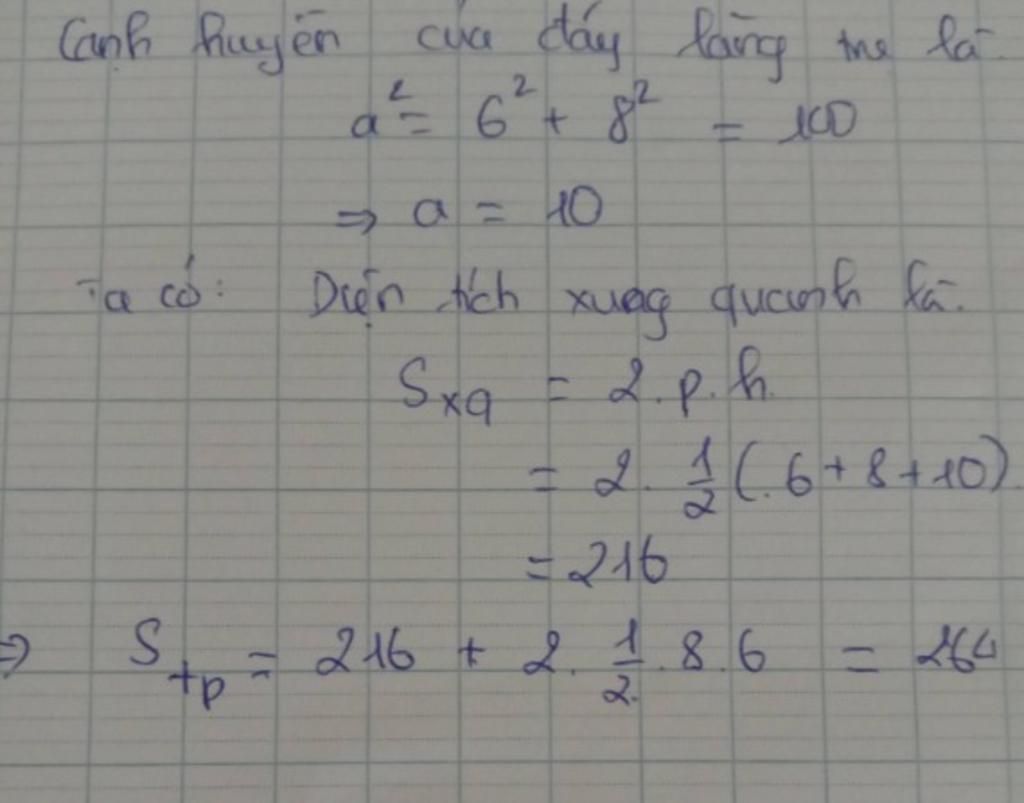 Cạnh huyền của đáy lăng trụ là
a² = 6² + 8² = 100
⇒ a = 10
Ta có: Diện tích xung quanh là.
Sxq = 2.p.h
= 2. 1/2 (.6 + 8 + 10)
= 216
⇒ Stp = 216 + 2. 1/2 .8.6 = 264